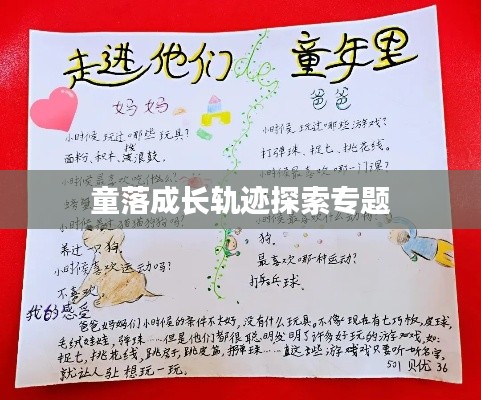 走进他们des 童年里
妈妈
爸爸
小时候玩过哪些玩具?
面粉、积木、拨浪鼓。
小时候玩过哪些游戏?
打弹珠、捉七、挑花线。
童落成长轨迹探索专题
养过一只狗
狗。
小时候喜欢运动吗?
不喜欢
最喜欢哪种运动?
打乒乓球.
我的感受
爸爸妈妈们小时候的条件不太好,没有什么玩具。不像现在有七巧板,皮球,
毛绒娃娃,弹珠……但是他们都很聪明发明了许多好玩的游戏,如:
捉七,挑花线,跳房子,跳皮筋,弹弹珠……这些游戏只要听一听名字,
就让人狂想玩一玩。
501 贝优 36